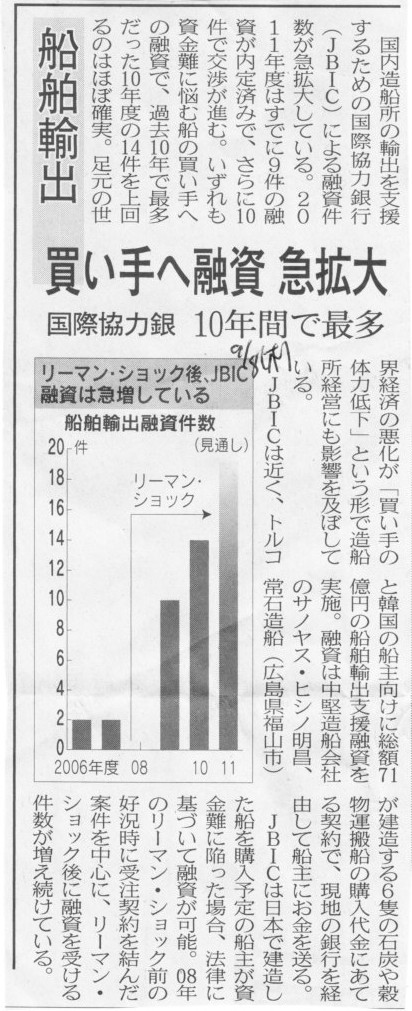 船舶輸出
買い手へ融資 急拡大
国際協力銀 10年間で最多
9/8(木)
国内造船所の輸出を支援
するための国際協力銀行
（ＪＢＩＣ）による融資件
数が急拡大している。２０
１１年度はすでに９件の融
資が内定済みで、さらに10
件で交渉が進む。いずれも
資金難に悩む船の買い手へ
の融資で、過去10年で最多
だった10年度の14件を上回
るのはほぼ確実。足元の世
界経済の悪化が「買い手の
体力低下」という形で造船
所経営にも影響を及ぼして
いる。
ＪＢＩＣは近く、トルコ
と韓国の船主向けに総額71
億円の船舶輸出支援融資を
実施。融資は中堅造船会社
のサノヤス・ヒシノ明昌、
常石造船（広島県福山市）
が建造する６隻の石炭や穀
物運搬船の購入代金にあて
る契約で、現地の銀行を経
由して船主にお金を送る。
ＪＢＩＣは日本で建造し
た船を購入予定の船主が資
金難に陥った場合、法律に
基づいて融資が可能。08年
のリーマン・ショック前の
好況時に受注契約を結んだ
案件を中心に、リーマン・
ショック後に融資を受ける
件数が増え続けている。
リーマン・ショック後、JBIC
融資は急増している
船舶輸出融資件数
20件
（見通し）
リーマン・
ショック
18
16
14
12
10
8
6
4
2
0
2006年度 08 10 11